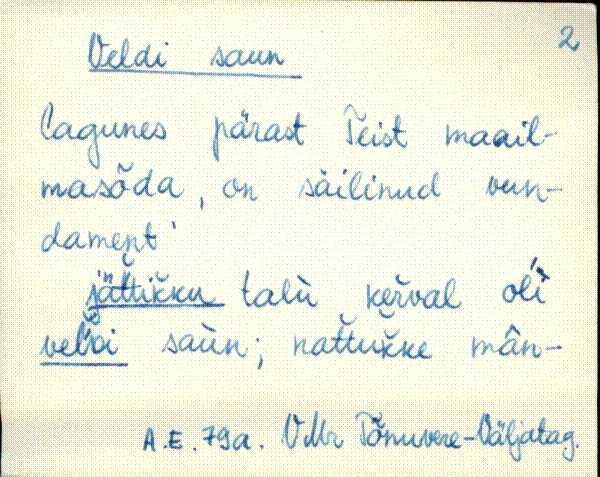 2
Veldi saun
lagunes pärast Teist maail-
masõda, on säilinud vun-
dament
jättikku talu kerval oli
veldi saun; nattukke mân-
A.E. 79a. VMr Tõnuvere-Väljatag.